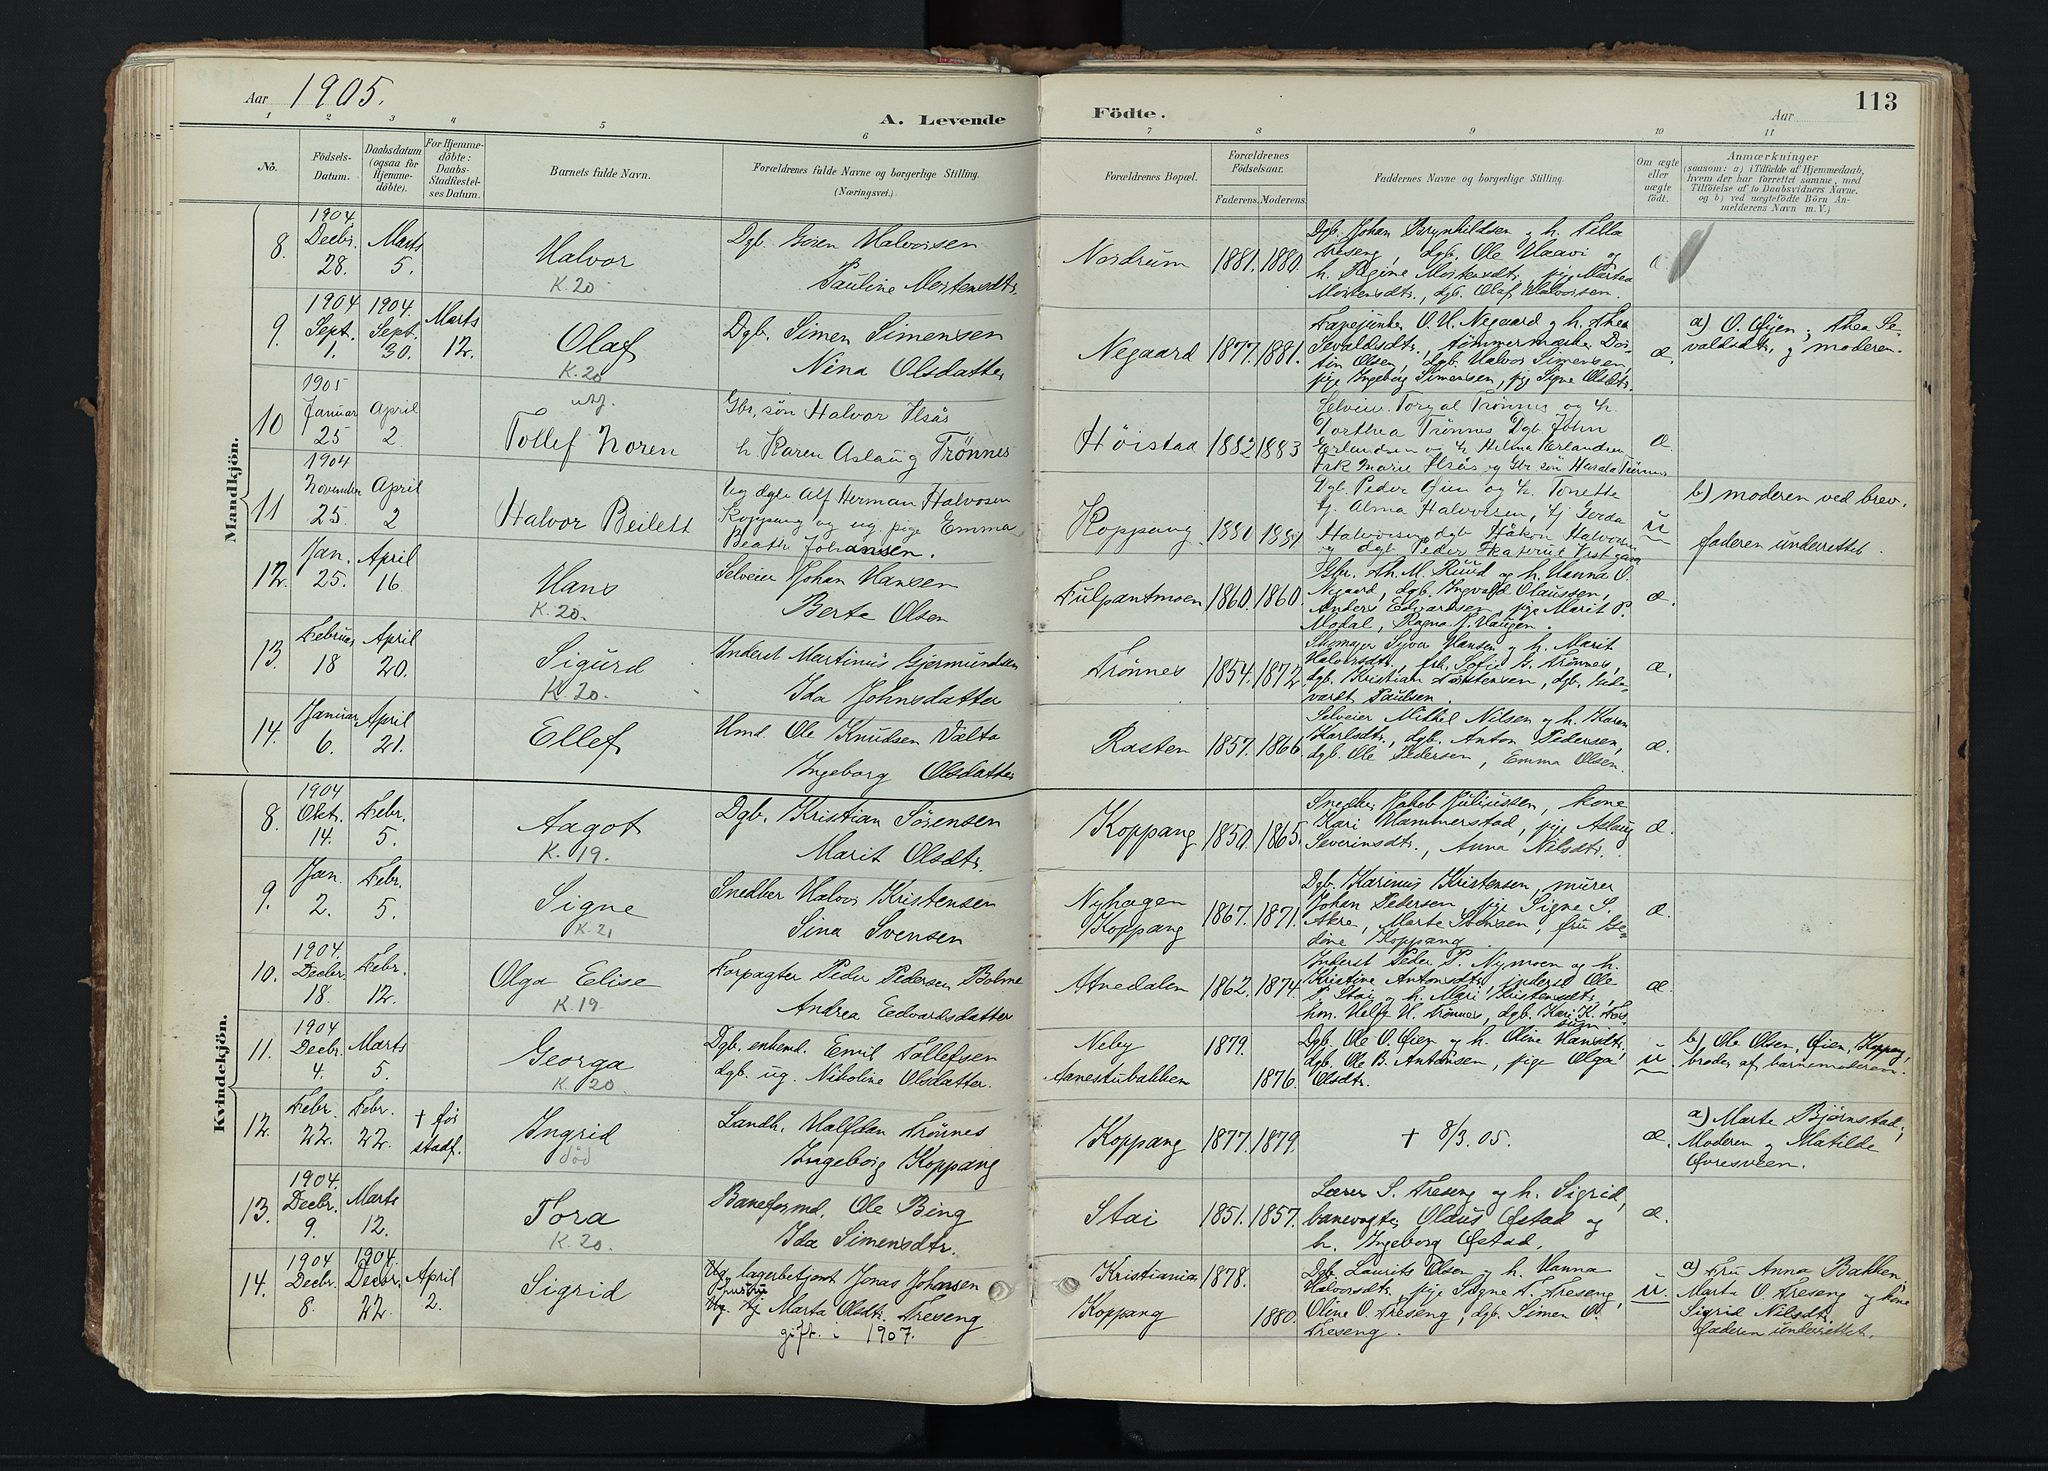 Aar 1905.
A. Levende
Födte.
Aar
113
1 2 3 4 5 6 7 8 9 10 11
No.
Födsels-Datum.
Daabsdatum (ogsaa for Hjemmedöbte).
For Hjemmedöbte: Daabs-Stadfæstelses Datum.
Barnets fulde Navn.
Forældrenes fulde Navne og borgerlige Stilling. (Næringsvei.)
Forældrenes Bopæl.
Forældrenes Födselsaar.
Faderens. Moderens.
Faddernes Navne og borgerlige Stilling.
Om ægte eller uægte födt.
Anmærkninger
(saasom: a) i Tilfælde af Hjemmedaab, hvem der har forrettet samme, med Tilföielse af to Daabsvidners Navne. og b) ved uægtefödte Börn Anmelderens Navn m. V.)
Mandkjön.
8. 1904 Decbr. 28. Marts 5. Halvor K. 20.
Dgb. Gören Halvorsen
Pauline Mortensdtr.
Nordrum 1881. 1880.
Dgb. Johan Brynhildsen og h. Tilla
Treseng, dgb. Ole Haavi og
h. Regine Mortensdtr, pige Marten
Mortensdtr., dgb. Olaf Halvorsen.
9. 1904 Sept. 1. 1904. Sept. 30. Marts 12. Olaf K. 20
Dgb. Simen Simensen
Nina Olsdatter
Negaard 1877. 1881.
O. H. Negaard og h. Thea
Sevaldsdtr., tømmermærker
Olsen, dgb. Halvor Simensen,
pige Ingeborg Simensen, pige Signe Olsdtr.
æ.
a) O. Øjen, Thea Sevaldsdtr. og moderen.
10 1905 Januar 25 April 2 utfl. Tollef Noren
Gbr. søn Halvor Ilsås
h. Karen Aslaug Trønnes
Høistad 1882 1883
Selveier Torgal Trønnes og h.
Dorthea Trønnes Dgb John
Erlandsen og h Helma Erlandsen
Frk Marie Ilsås og Gbr søn Trønnes
æ
11 1904 November 25. April 2 Halvor Beilett
Ug dgb Alf Herman Halvosen
Koppang og ug. pige Emma
Beate Johansen.
Koppang 1880 1881
Dgb. Peder Øien og h. Tonette
tj. Alma Halvorsen, tj Gerda
Halvorsen, dgb Håkon Halvorsen
og dgb Peder
u
b) moderen ved brev.
faderen underrettet.
12. Jan. 25. April 16 Hans K. 20.
Selveier Johan Hansen
Berte Olsen
Fulpantmoen 1860. 1860.
Gbr. Th. M. Ruud og h. Hanna O.
Negaard, dgb. Ingvald Olaussen,
Anders Edvardsen, pige Marit P.
Modal, Ragna J. Haugen.
æ.
13. Februar 18 April 20. Sigurd K 20.
Inderst Martinus Gjermundsen
Ida Johnsdatter
Trønnes 1854. 1872
Sijver Hansen og h. Marit
Halvorsdtr., frk. Sofie G. Trønnes,
dgb. Kristian Torstensen, dgb.
Paulsen.
æ.
14. Januar 6. April 21. Ellef
Hmd. Ole Knudsen Vælta
Ingeborg Olsdatter
Rasten 1857. 1866
Selveier Mikkel Nilsen og h. Karen
Karlsdtr., dgb. Anton Pedersen,
dgb. Ole Pedersen, Emma Olsen.
æ.
Kvindekjön.
8. 1904 Okt. 14. Febr. 5. Aagot K. 19.
Dgb. Kristian Sörensen
Marit Olsdtr.
Koppang 1850. 1865.
Snedker Jakob Juliussen, kone
Kari Hammerstad, pige Aslaug
Severinsdtr., Anna Nilsdtr.
æ.
9. Jan. 2. Febr. 5. Signe K. 21
Snedker Halvor Kristensen
Sina Svensen
Nyhagen Koppang 1867. 1871.
Dgb. Karinus Kristensen, murer
Johan Pedersen, pige Signe S.
Akre, Marte Svensen, fru Gedine Koppang.
æ.
10. 1904. Decbr. 18. Febr. 12. Olga Elise K. 19.
Forpagter Peder Pedersen Bolme
Andrea Edvardsdatter
Atnedalen 1862. 1874.
Inderst Peder P. Nymoen og h.
Kristine Antonsdtr., inderst Ole
P. Stai og h. Mari Kristensdtr.,
hm. Helge H. Trønnes, dgb. Kari K.
æ.
11. 1904 Decbr. 4. Marts 5. Georga K. 20
Dgb. enkemd. Emil Tollefsen
dgb. ug. Nikoline Olsdatter.
Neby 1879.
Aanestubakken 1876.
Dgb. Ole O. Øien og h. Oline Hansdtr.
dgb. Ole B. Antonsen, pige Olga
Olsdtr.
u.
b) Ole Olsen Øien, Koppang,
broder af barnemoderen.
12. Febr. 22. Febr. 22. † før stadf. Ingrid død
Landh. Halfdan Trönnes
Ingeborg Koppang
Koppang 1877. 1879.
† 8/3. 05.
æ.
a) Marte Bjørnstad,
Moderen og Matilde
Øvresveen.
13. 1904. Decbr. 9. Marts 12. Tora K. 20.
Baneformd. Ole Bing
Ida Simensdtr.
Stai 1851. 1857.
Lærer S. Treseng og h. Sigrid,
banevogter Olaus Øfstad og
h. Ingeborg Øfstad.
æ.
14. 1904 Decbr. 8. 1904. Decbr. 22. April 2. Sigrid
Ug. lagerbetjent Jonas Johansen
Ug. tj Marta Olsdtr. Treseng
gift i 1907.
Kristiania 1878.
Koppang 1880.
Dgb. Laurits Olsen og h. Hanna
Halvorsdtr., pige Signe T. Treseng,
Oline O. Treseng, dgb. Simen O.
Treseng.
u.
a) Fru Anna Bakken,
Marta O. Treseng og kone
Sigrid Nilsdtr.
faderen underrettet.